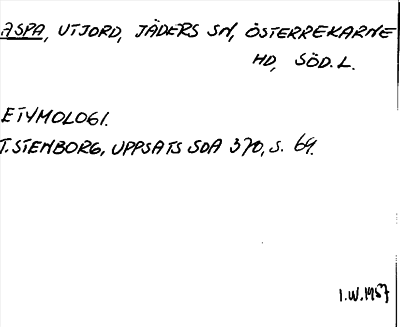 ASPA, UTJORD, JÄDERS SN, ÖSTERREKARNE
HD, SÖD. L.
ETYMOLOGI.
T. STENBORG, UPPSATS SDA 370, S. 69.
I.W. 1957